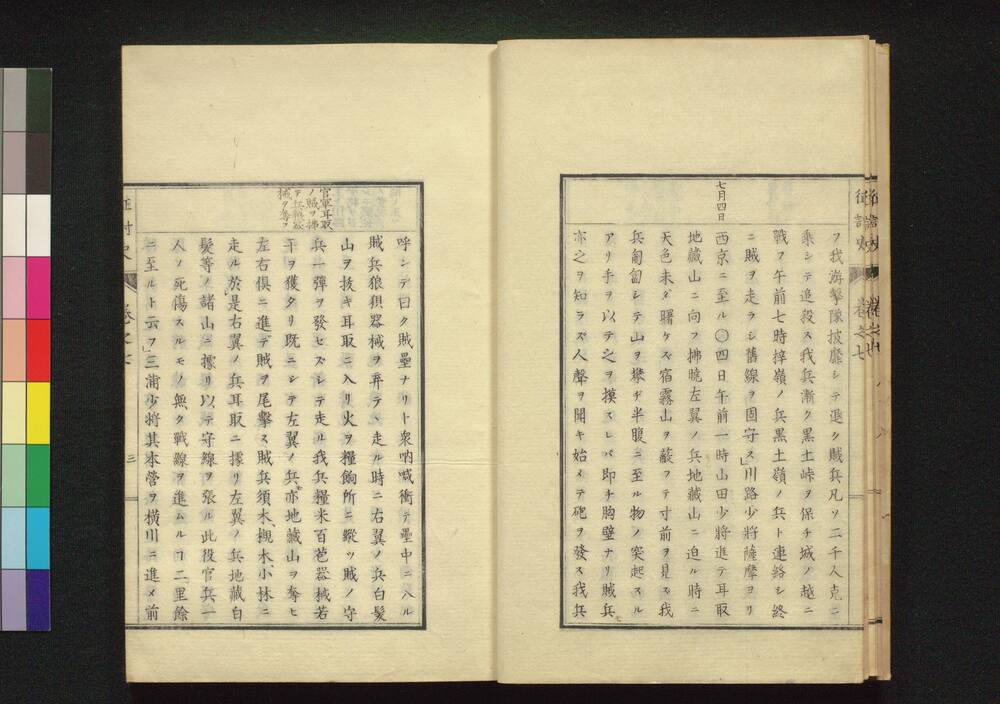 征討史
卷之七
七月四日
フ我游擊隊披靡シテ退ク賊兵凡ソ二千人克ニ
乘シテ追殺ス我兵漸ク黑土峠ヲ保チ城ノ越ニ
戰フ午前七時擇嶺ノ兵黑土嶺ノ兵ト連絡シ終
ニ賊ヲ走ラシ舊線ヲ固守ス」川路少將薩摩ヨリ
西京ニ至ル〇四日午前一時山田少將進テ耳取
地藏山ニ向フ拂曉左翼ノ兵地藏山ニ迫ル時ニ
天色未ダ曙ケズ宿霧山ヲ蔽フテ寸前ヲ見ズ我
兵匍匐シテ山ヲ攀ヂ半腹ニ至ル物ノ突起スル
アリ手ヲ以テ之ヲ摸スレバ卽チ胸壁ナリ賊兵モ
亦之ヲ知ラズ人聲ヲ聞キ始メテ砲ヲ發ス我兵
官軍耳取
ノ賊ヲ拂
テ兵糧器
械ヲ奪フ
呼ンデ曰ク賊壘ナリト衆吶喊衝テ壘中ニ入ル
賊兵狼狽器械ヲ弃テヽ走ル時ニ右翼ノ兵白髮
山ヲ拔キ耳取ニ入リ火ヲ糧餉所ニ縱ツ賊ノ守
兵一彈ヲ發セズシテ走ル我兵糧米百苞器械若
干ヲ獲タリ既ニシテ左翼ノ兵モ亦地藏山ヲ奪ヒ
左右倶ニ進デ賊ヲ尾擊ス賊兵須木、槻木、小林ニ
走ル於是右翼ノ兵耳取ニ據リ左翼ノ兵地藏白
髮等ノ諸山ニ據リ以テ守線ヲ張ル此役官兵一
人ノ死傷スルモノ無ク戰線ヲ進ムルコ二里餘
ニ至ルト云フ」三浦少將其本營ヲ橫川ニ進メ前
征討史
卷之七
三